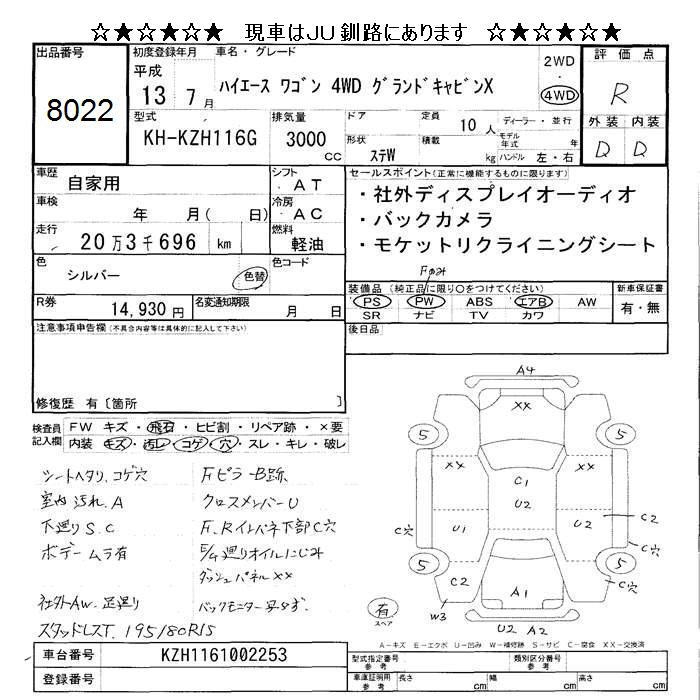 ☆★☆★☆★☆ 現車はJU釧路にあります ☆★☆★☆★☆
出品番号
8022
初度登録年月
平成
13 7 月
車名・グレード
ハイエース ワゴン 4WD グランドキャビンX
2WD
・
4WD
評価点
R
型式
KH-KZH116G
排気量
3000
cc
ドア
定員
10 人
形状
ステW
積載
kg
ディーラー・並行
モデル年式 年
ハンドル 左・右
外装 内装
D D
車歴
自家用
シフト
AT
車検
年 月( 日)
冷房
AC
走行
20万3千696 km
燃料
軽油
色
シルバー
色替
色コード
R券
14,930 円
名変通知期限
月 日
セールスポイント(正常に機能するものに限ります)
・社外ディスプレイオーディオ
・バックカメラ
・モケットリクライニングシート
Fのみ
装備品 (純正品に限り○をつけてください)
PS PW ABS エアB AW
SR ナビ TV カワ
新車保証書
有・無
後日品
注意事項申告欄(不具合内容等は具体的に記入して下さい)
修復歴 有〔箇所 〕
検査員記入欄
FW キズ・飛石・ヒビ割・リペア跡・×要
内装 キズ・汚レ・コゲ・穴・スレ・キレ・破レ
シートヘタリ、コゲ穴
室内汚れ.A
下廻りS.C
ボデームラ有
社外AW.足廻り
スタッドレスT. 195/80R15
Fピラー B跡
クロスメンバーU
F.Rインパネ下部C穴
E/g廻りオイルにじみ
ダッシュパネルXX
A4
XX
5 5
XX XX
C1
U2
U1 U2
C2
C穴
C穴
5 5
C2
C穴
A1
W3
有
スペア
U2 A2
A-キズ E-エクボ U-凹み W-補修跡 S-サビ C-腐食 XX-交換済
車台番号
KZH1161002253
登録番号
型式指定番号
参考
類別区分番号
参考
車庫証明用
参考
長さ cm
幅 cm
高さ cm